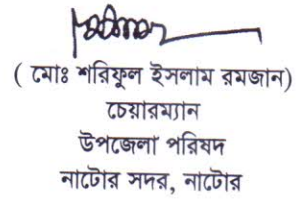 ( মোঃ শরিফুল ইসলাম রমজান)
চেয়ারম্যান
উপজেলা পরিষদ
নাটোর সদর, নাটোর